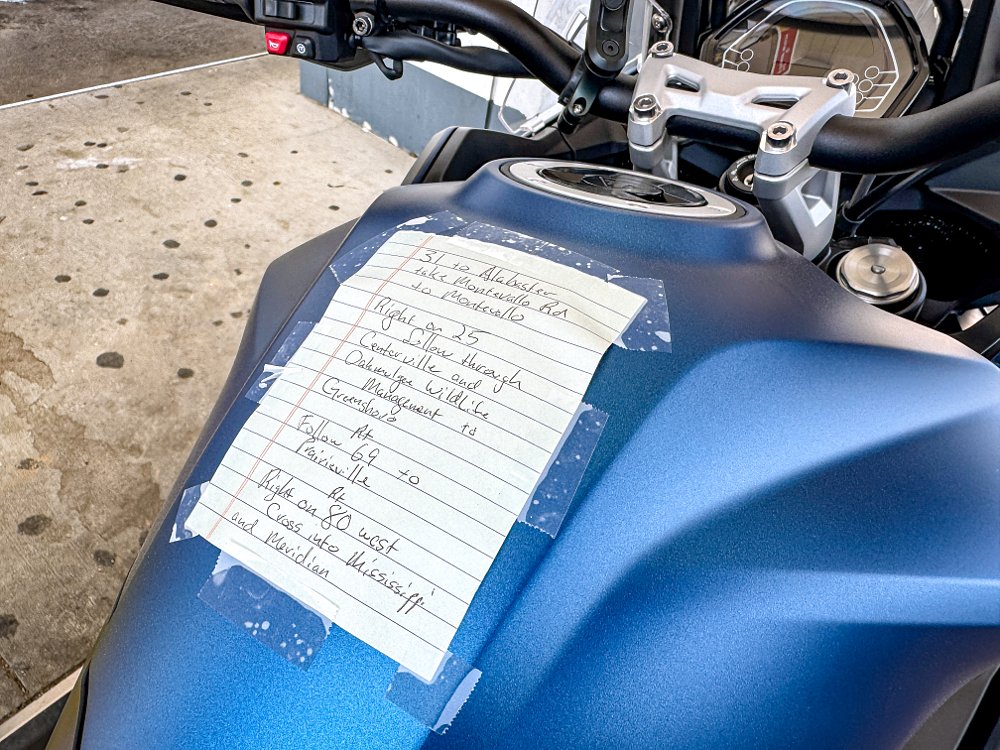 31 to Alabaster
take Montevallo Rd
to Montevallo
Right on 25
follow through
Centerville and
Oakmulgee Wildlife
Management to
Greensboro
Rt
Follow 69 to
Prairieville
Rt
Right on 80 west
Cross into Mississippi
and Meridian